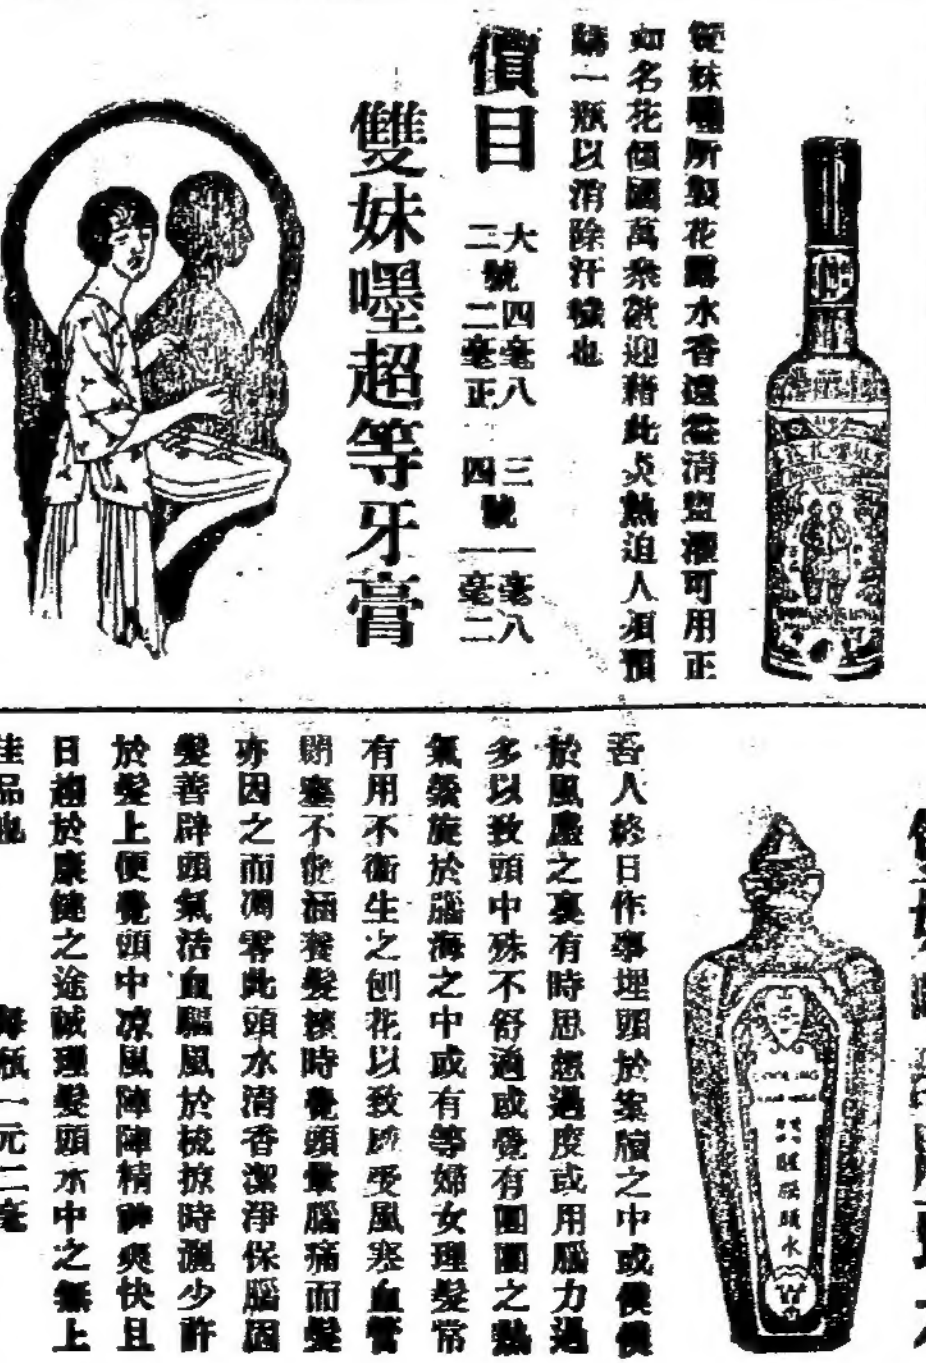 雙妹嚜所製花露水香遠益清盥濯可用正
如名花傾國萬衆歡迎藉此炎熱迫人須預
購一瓶以消除汗穢也
價目
大號四毫八 三號一毫八
二號二毫正 四號一毫二
雙妹嚜超等牙膏
COOLING
醒腦頭水
吾人終日作事埋頭於案牘之中或僕僕
於風塵之裏有時思想過度或用腦力過
多以致頭中殊不舒適或覺有團團之熱
氣縈旋於腦海之中或有等婦女理髮常
有用不衞生之刨花以致感受風寒血管
閉塞不能涵養髮際時覺頭暈腦痛而髮
亦因之而凋零此頭水清香潔淨保腦固
髮善辟頭氣活血驅風於梳掠時灑少許
於髮上便覺頭中凉風陣陣精神爽快且
日趨於康健之途誠理髮頭水中之無上
佳品也 每瓶一元二毫